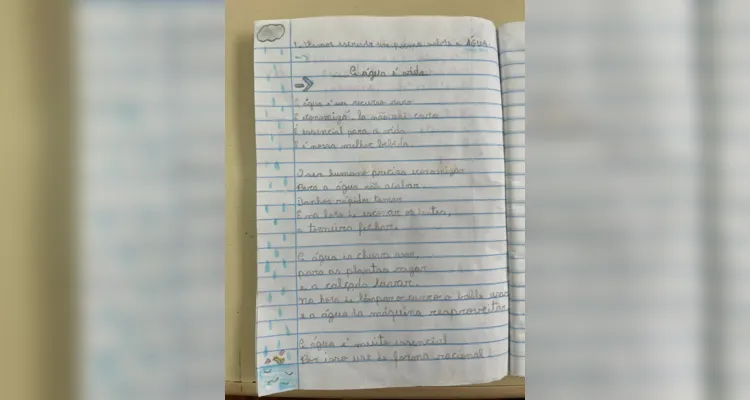 1. Vamos escrever um poema sobre a ÁGUA
A água é vida
A água é um recurso raro
E economizá-la não sai caro
É essencial para a vida
E é nossa melhor bebida.
O ser humano precisa economizar
Para a água não acabar.
Banhos rápidos tomar
E na hora de escovar os dentes,
a torneira fechar.
A água da chuva usar,
para as plantas regar
e a calçada lavar.
Na hora de limpar o carro o balde usar
e a água da máquina reaproveitar
A água é muito essencial
Por isso use de forma racional!